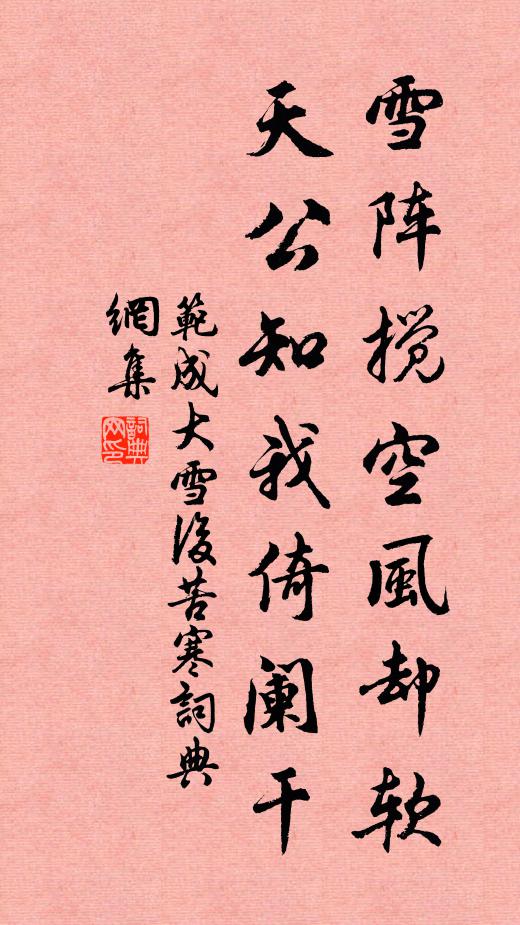 雪阵搅空風却软
天公知我倚阑干
範成大雪後苦寒詞典
網集
詞典网印